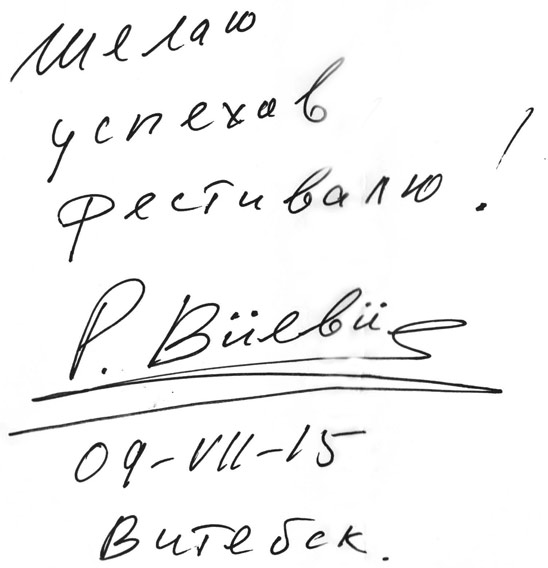 Желаю
успехов
фестивалю!
Р.
09-VII-15
Витебск.